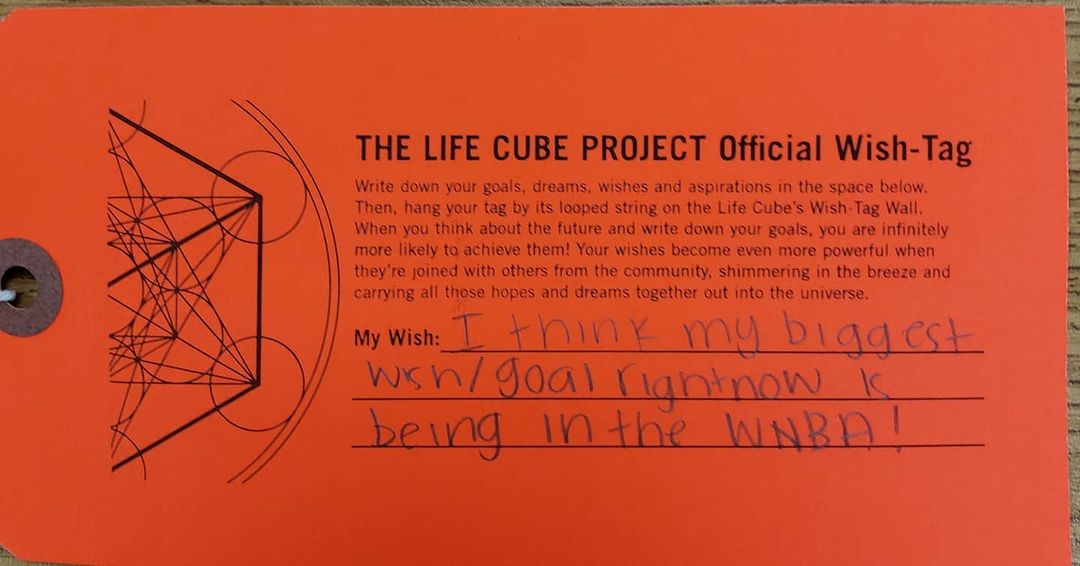 THE LIFE CUBE PROJECT Official Wish-Tag
Write down your goals, dreams, wishes and aspirations in the space below.
Then, hang your tag by its looped string on the Life Cube's Wish-Tag Wall.
When you think about the future and write down your goals, you are infinitely
more likely to achieve them! Your wishes become even more powerful when
they're joined with others from the community, shimmering in the breeze and
carrying all those hopes and dreams together out into the universe.
My Wish: I think my biggest
wish/goal right now is
being in the WNBA!